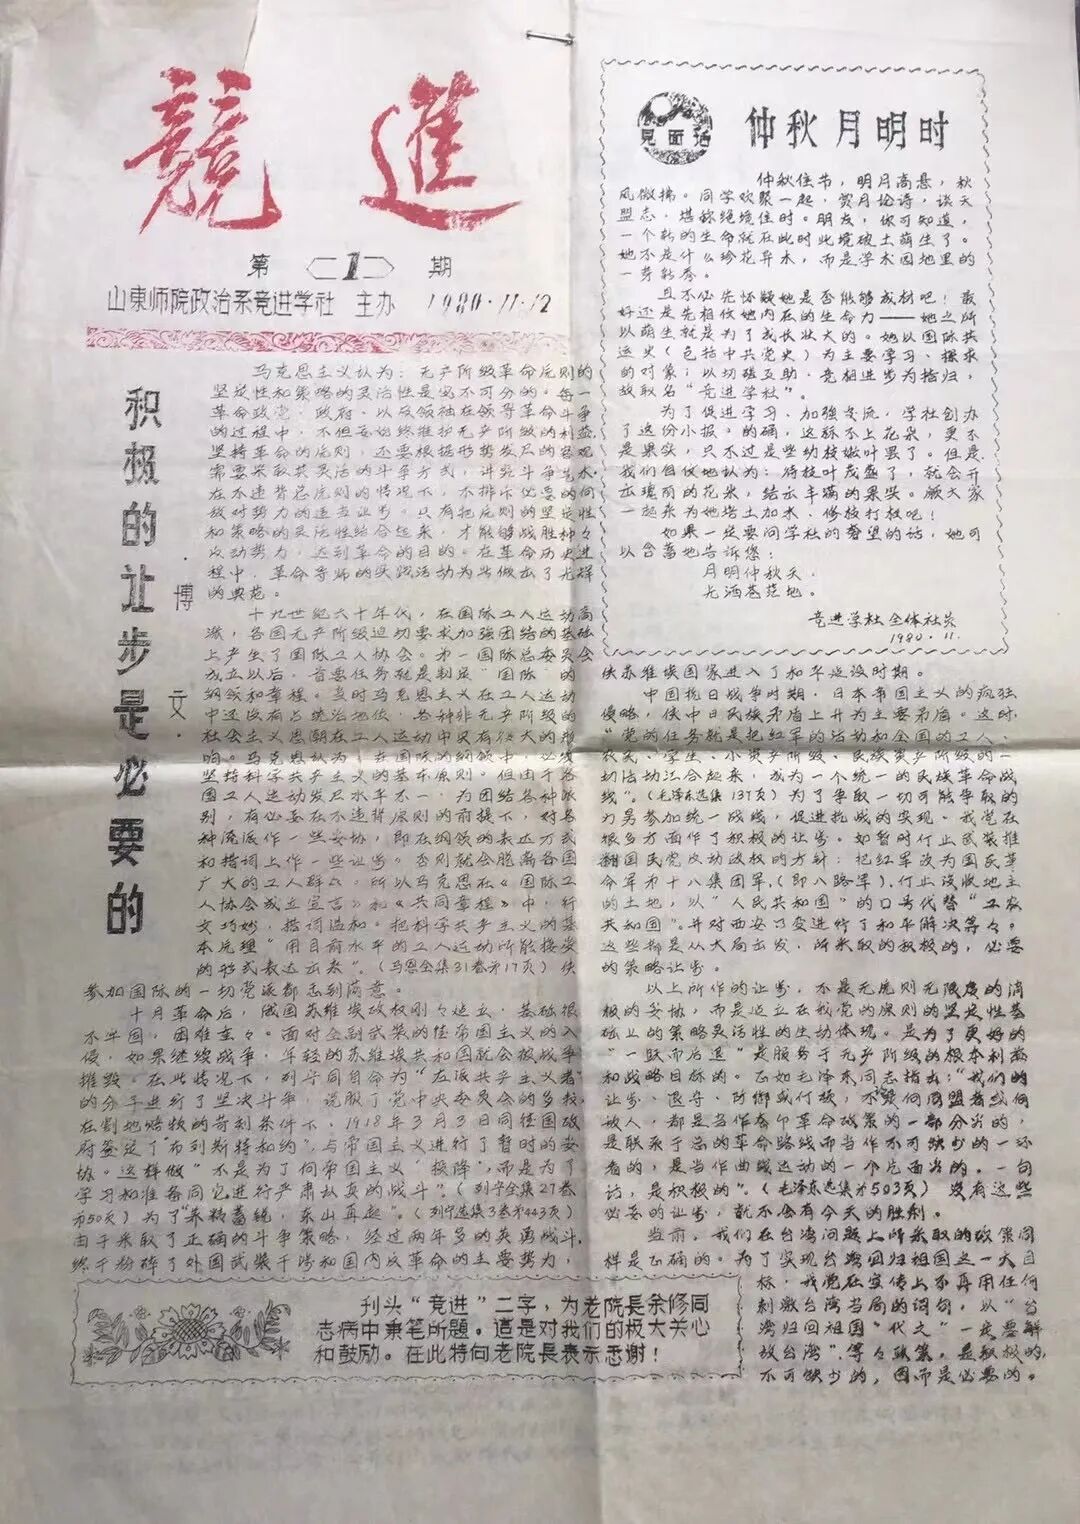 競進
第 1 期
山東师院政治系竞进学社 主办 1980·11·12
積极的让步是必要的
·博文·
马克思主义认为：无产阶级革命原则的
坚定性和策略的灵活性是密不可分的。每一
革命政党、政府、以及领袖在领导革命斗争
的过程中，不但要始终维护无产阶级的利益，
坚持革命的原则，还要根据形势发展的客观
需要采取其灵活的斗争方式，讲究斗争艺术，
在不违背总原则的情况下，不排斥必要的向
敌对势力的适当让步。只有把原则的坚定性
和策略的灵活性结合起来，才能够战胜种々
反动势力，达到革命的目的。在革命历史进
程中，革命导师的实践活动为此做出了光辉
的典范。
十九世纪六十年代，在国际工人运动高
涨，各国无产阶级迫切要求加强团结的基础
上产生了国际工人协会。第一国际总委员会
成立以后，首要任务就是制定“国际”的
纲领和章程。当时马克思主义在工人运动
中还没有占统治地位，各种非无产阶级的
社会主义思潮在工人运动中具有很大的影
响。马克思认为，在国际的纲领中，必须
坚持科学共产主义的基本原则。但由于各
国工人运动发展水平不一，为团结各种派
别，有必要在不违背原则的前提下，对各
种流派作一些妥协，即在纲领的表达方式
和措词上作一些让步。否则就会脱离各国
广大的工人群众。所以马克思在《国际工
人协会成立宣言》和《共同章程》中，行
文巧妙，措词温和。把科学共产主义的基
本原理“用目前水平的工人运动所能接受
的形式表达出来”。（马恩全集31卷第17页）使
参加国际的一切党派都感到满意。
十月革命后，俄国苏维埃政权刚々建立，基础很
不牢固，困难重々。面对全副武装的德帝国主义的入
侵，如果继续战争，年轻的苏维埃共和国就会被战争
摧毁。在此情况下，列宁同自命为“左派共产主义者”
的分子进行了坚决斗争，说服了党中央委员会的多数，
在割地赔款的苛刻条件下，1918年3月3日同德国政
府签定了“布列斯特和约”，与帝国主义进行了暂时的妥
协。这样做“不是为了向帝国主义‘投降’，而是为了
学习和准备同它进行严肃认真的战斗”。（列宁全集27卷
第50页）为了“养精蓄锐，东山再起”。（列宁选集3卷第443页）
由于采取了正确的斗争策略，经过两年多的英勇战斗，
终于粉碎了外国武装干涉和国内反革命的主要势力，
見面话
仲秋月明时
仲秋佳节，明月高悬，秋
风微拂。同学欢聚一起，赏月论诗，谈天
盟志，堪称绝境佳时。朋友，你可知道，
一个新的生命就在此时此境破土萌生了。
她不是什么珍花异木，而是学术园地里的
一芽新秀。
且不必先怀疑她是否能够成材吧！最
好还是先相信她内在的生命力——她之所
以萌生就是为了成长壮大的。她以国际共
运史（包括中共党史）为主要学习、探求
的对象；以切磋互助、竞相进步为指归，
故取名“竞进学社”。
为了促进学习、加强交流，学社创办
了这份小报。的确，这称不上花朵，更不
是果实，只不过是些幼枝嫩叶罢了。但是，
我们自信地认为：待枝叶茂盛了，就会开
出瑰丽的花米，结出丰满的果实。愿大家
一起来为她培土加木、修枝打杈吧！
如果一定要问学社的希望的话，她可
以含蓄地告诉您：
月明仲秋天，
光洒苍茫地。
竞进学社全体社员
1980·11.
使苏维埃国家进入了和平建设时期。
中国抗日战争时期，日本帝国主义的疯狂
侵略，使中日民族矛盾上升为主要矛盾。这时，
“党的任务就是把红军的活动和全国的工人、
农民、学生、小资产阶级、民族资产阶级的一
切活动汇合起来，成为一个统一的民族革命战
线”。（毛泽东选集137页）为了争取一切可能争取的
力量参加统一战线，促进抗战的实现。我党在
很多方面作了积极的让步。如暂时停止武装推
翻国民党反动政权的方针；把红军改为国民革
命军第十八集团军，（即八路军），停止没收地主
的土地，以“人民共和国”的口号代替“工农
共和国”。并对西安事变进行了和平解决等々。
这些都是从大局出发，所采取的积极的，必要
的策略让步。
以上所作的让步，不是无原则无限度的消
极的妥协，而是建立在我党的原则的坚定性基
础上的策略灵活性的生动体现。是为了更好的
“一跃而后退”是服务于无产阶级的根本利益
和战略目标的。正如毛泽东同志指出：“我们的
让步、退守、防御或停顿，不论向同盟者或向
敌人，都是当作整个革命政策的一部分看的，
是联系于总的革命路线而当作不可缺少的一环
看的，是当作曲线运动的一个片面看的。一句
话，是积极的”。（毛泽东选集第503页）没有这些
必要的让步，就不会有今天的胜利。
当前，我们在台湾问题上所采取的政策同
样是正确的。为了实现台湾回归祖国这一大目
标，我党在宣传上不再用任何
刺激台湾当局的词句，以“台
湾归回祖国”代之“一定要解
放台湾”，等々政策。是积极的，
不可缺少的，因而是必要的。
刊头“竞进”二字，为老院長余修同
志病中秉笔所題。這是对我们的极大关心
和鼓励。在此特向老院長表示悉谢！